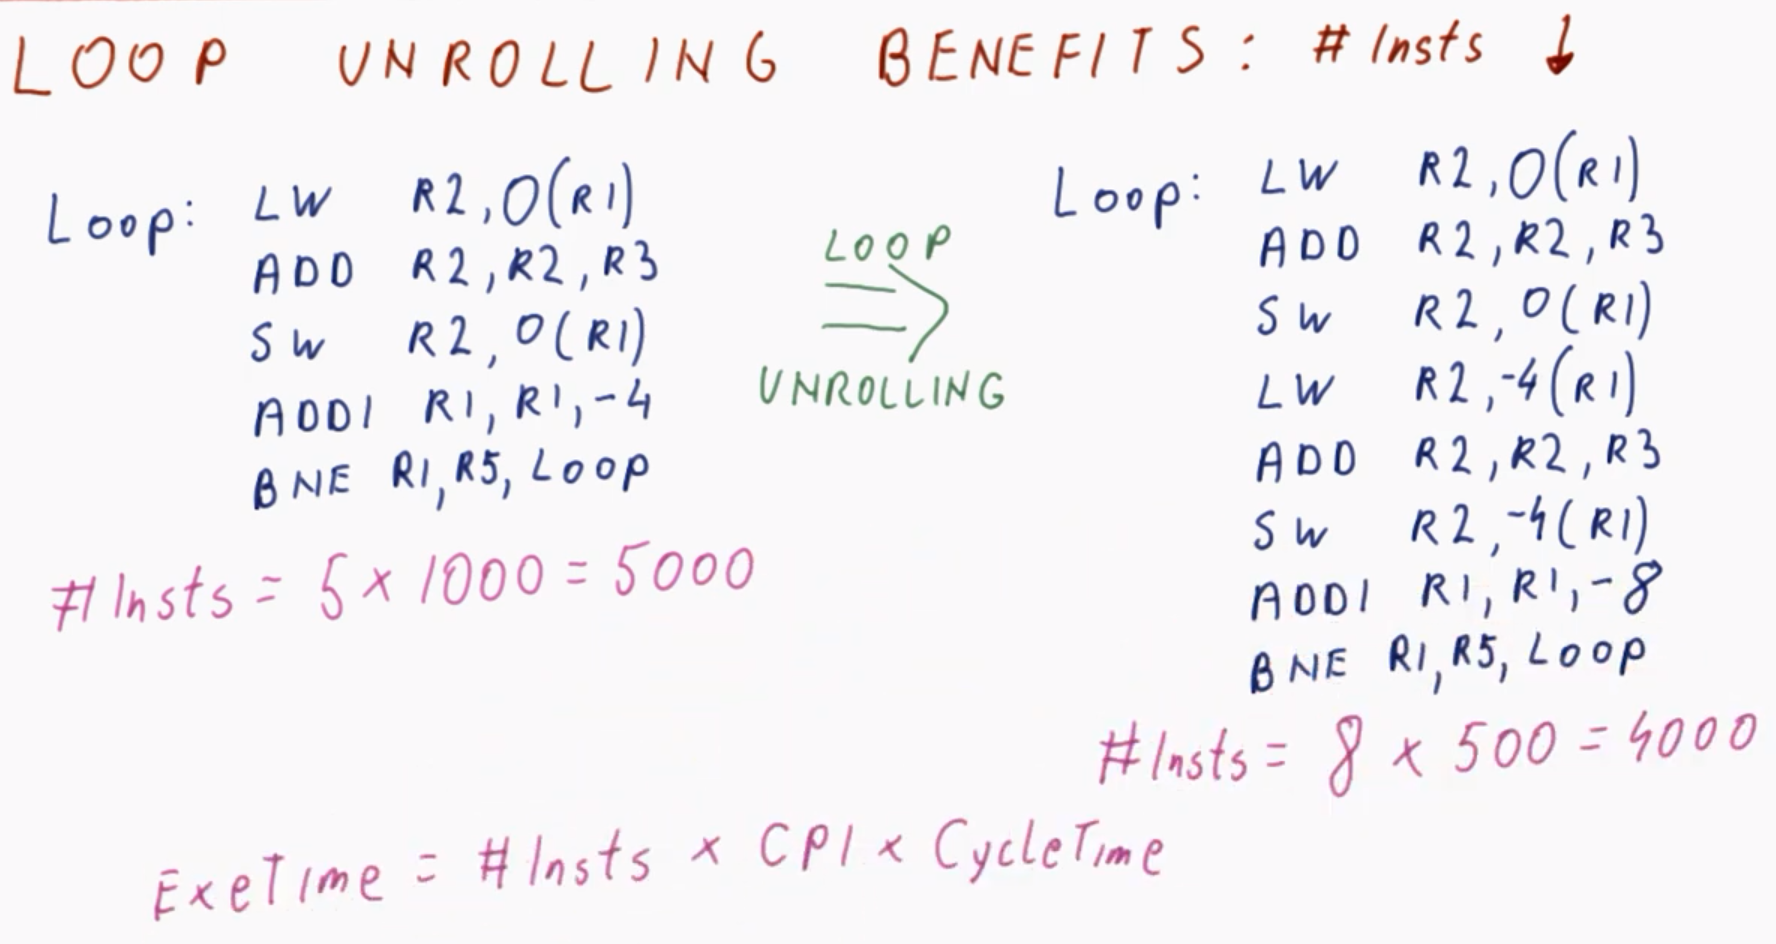 LOOP UNROLLING BENEFITS: # Insts ↓
Loop: LW R2,0(R1)
ADD R2,R2,R3
SW R2,0(R1)
ADDI R1,R1,-4
BNE R1,R5,Loop
#Insts = 5 x 1000 = 5000
LOOP
UNROLLING
Loop: LW R2,0(R1)
ADD R2,R2,R3
SW R2,0(R1)
LW R2,-4(R1)
ADD R2,R2,R3
SW R2,-4(R1)
ADDI R1,R1,-8
BNE R1,R5,Loop
#Insts = 8 x 500 = 4000
ExeTime = #Insts x CPI x CycleTime